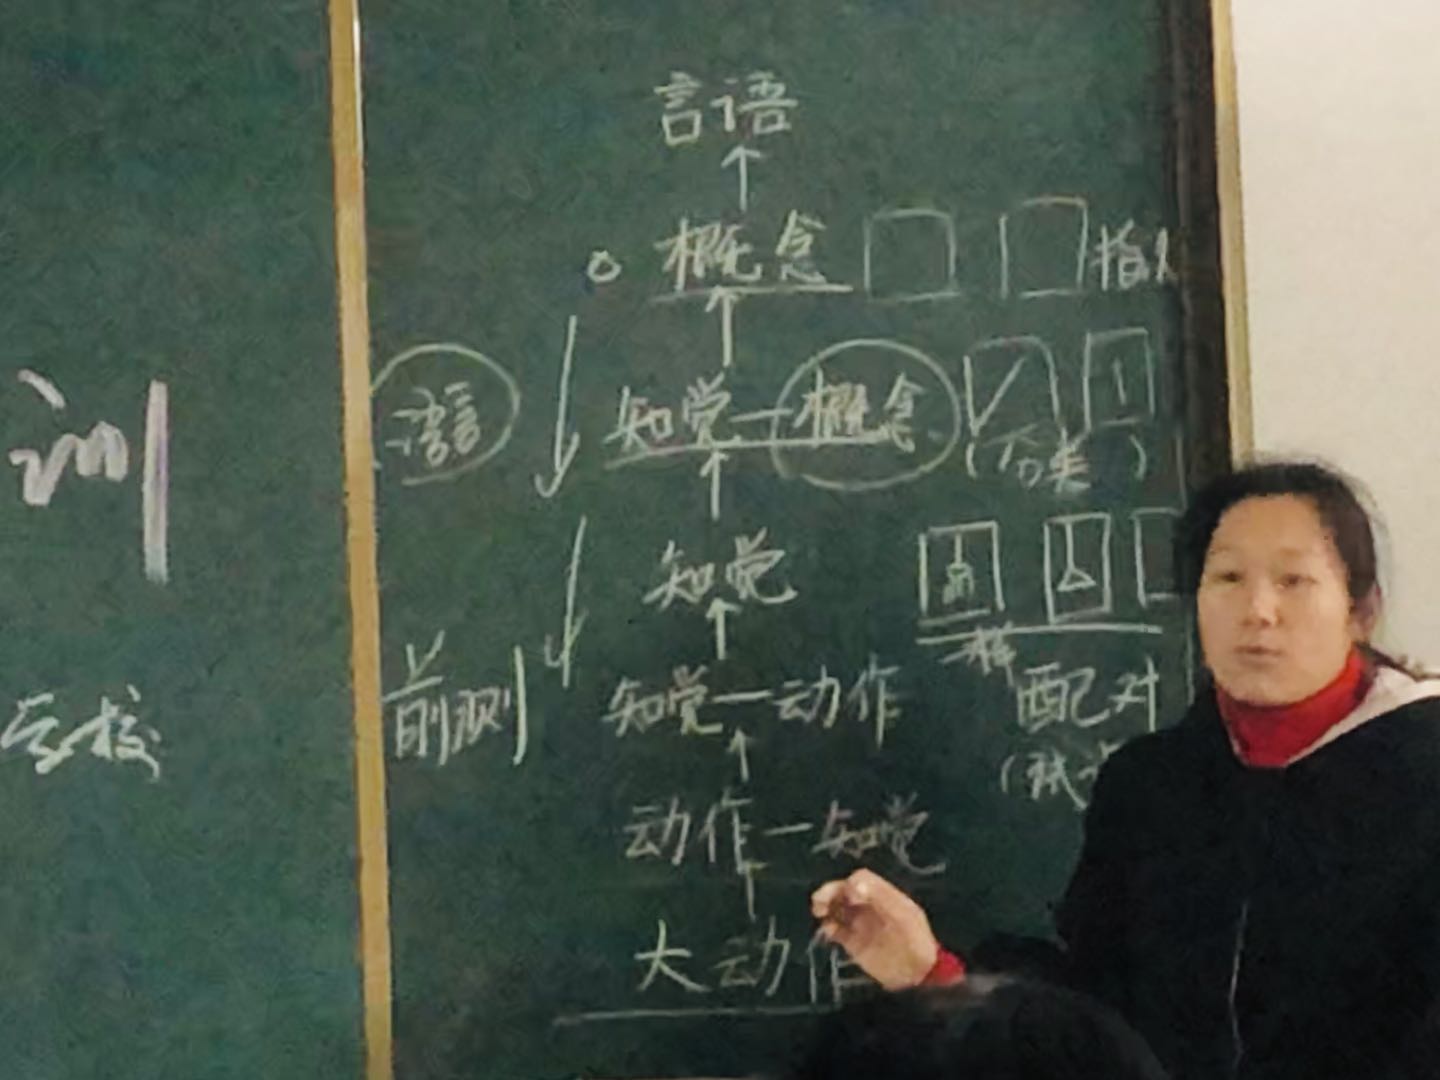 训
学校
言语
概念 指认
知觉—概念 (分类)
知觉
一样
知觉—动作 配对
前测
(试
动作—知觉
大动作